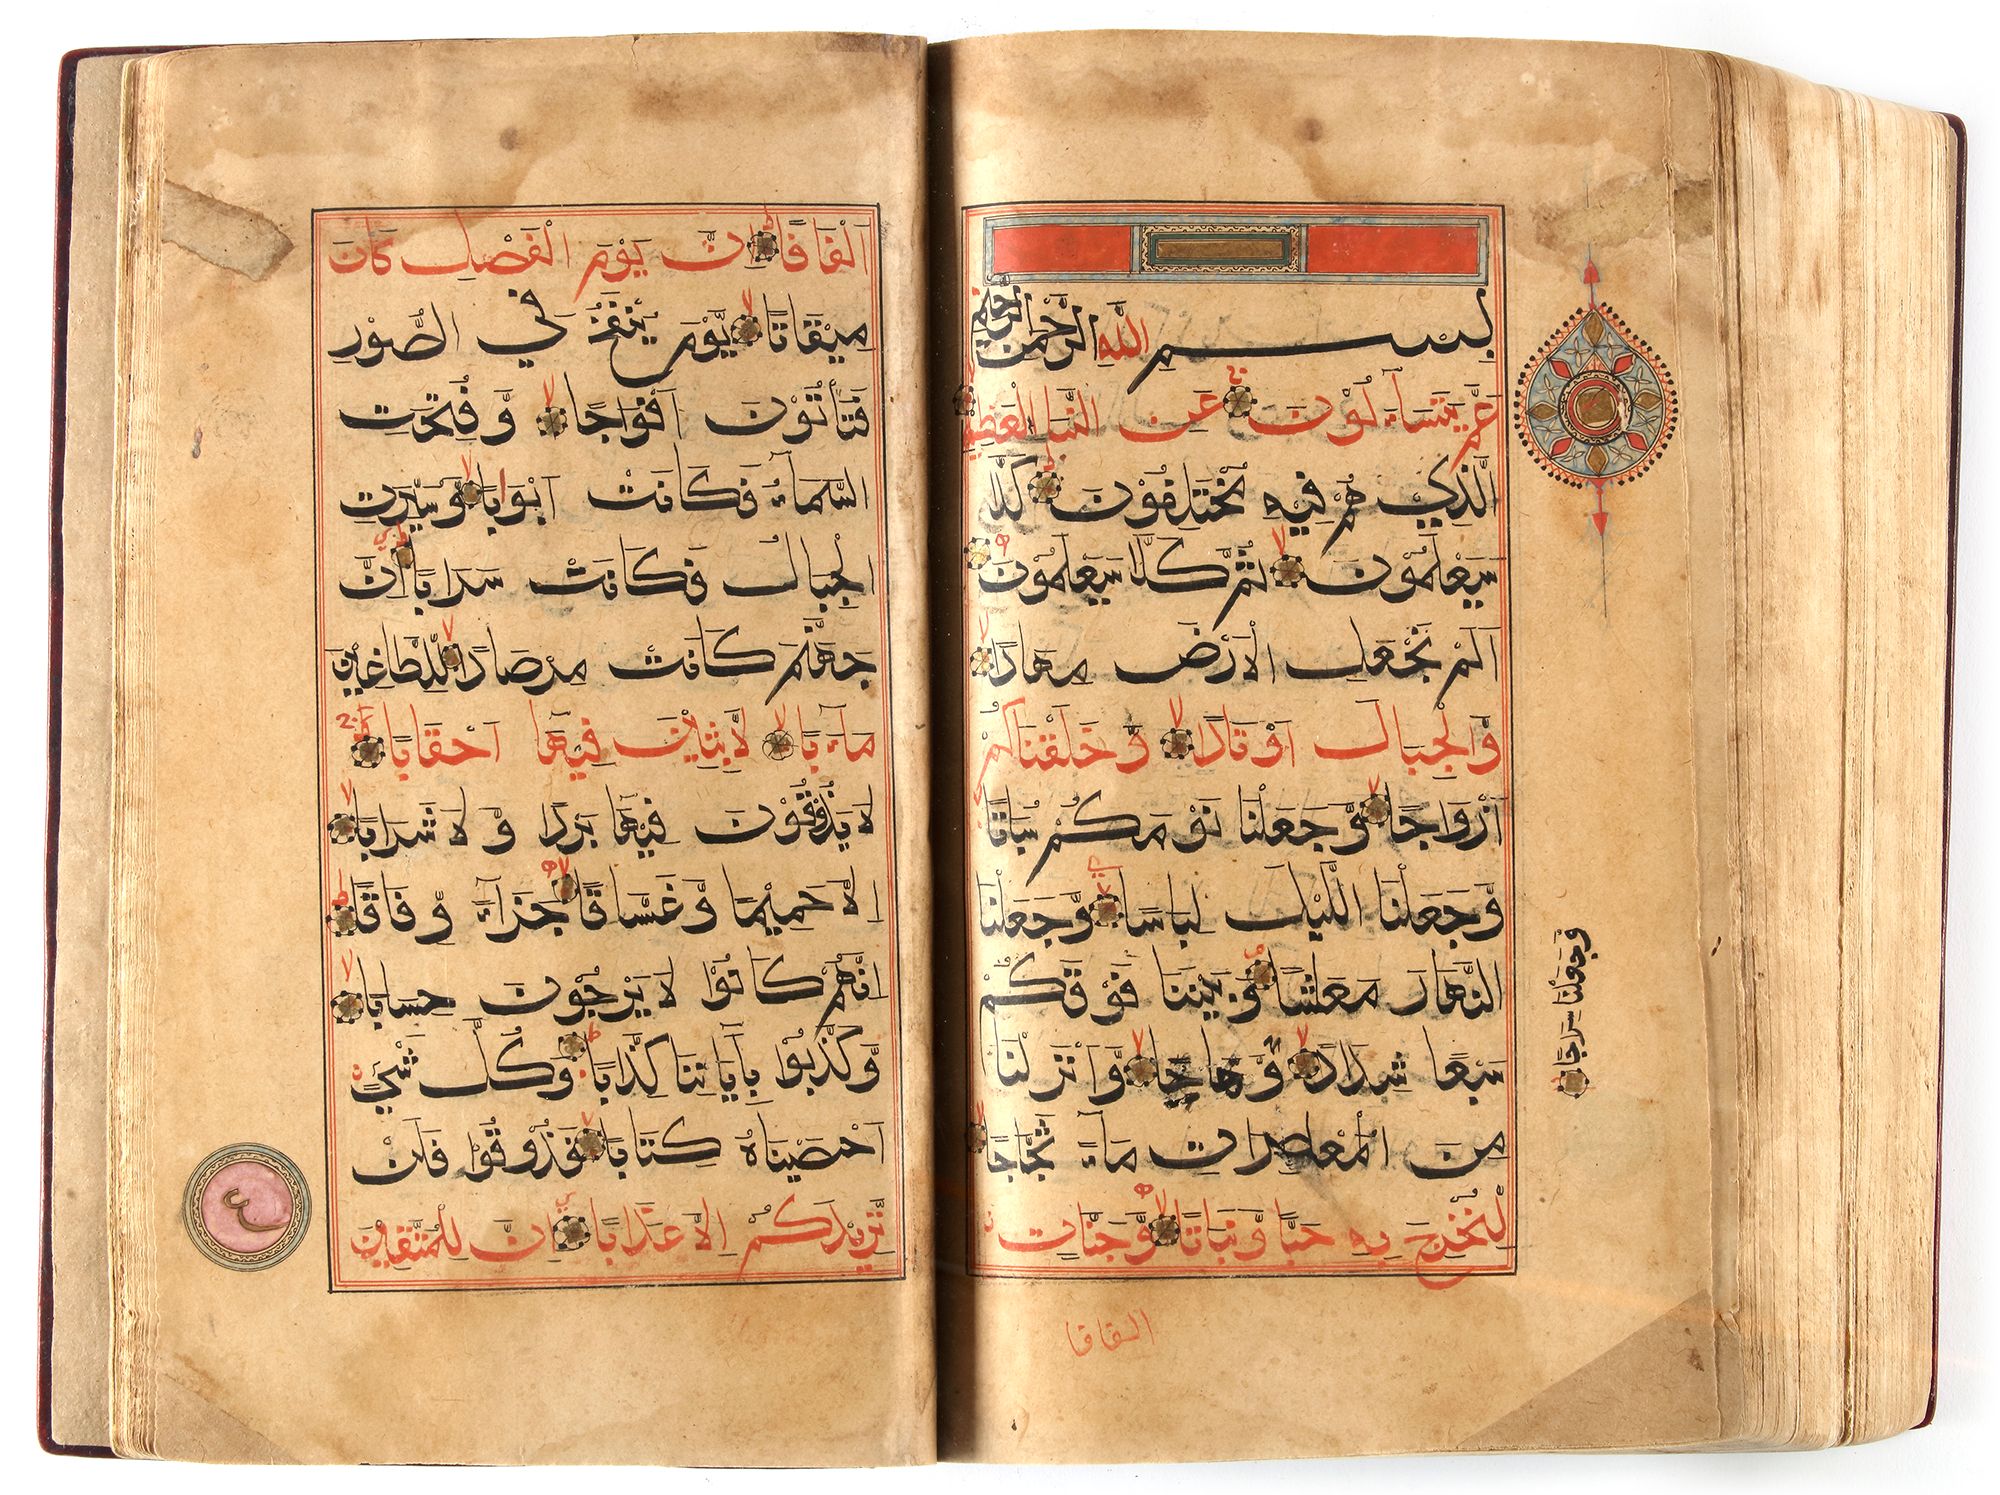 بِسْمِ اللّٰهِ الرَّحْمٰنِ الرَّحِيْمِ
عَمَّ يَتَسَآءَلُوْنَ عَنِ النَّبَاِ الْعَظِيْمِ
الَّذِيْ هُمْ فِيْهِ مُخْتَلِفُوْنَ كَلَّا
سَيَعْلَمُوْنَ ثُمَّ كَلَّا سَيَعْلَمُوْنَ
اَلَمْ نَجْعَلِ الْاَرْضَ مِهَادًا
وَّالْجِبَالَ اَوْتَادًا وَّخَلَقْنَاكُمْ
اَزْوَاجًا وَّجَعَلْنَا نَوْمَكُمْ سُبَاتًا
وَّجَعَلْنَا اللَّيْلَ لِبَاسًا وَّجَعَلْنَا
النَّهَارَ مَعَاشًا وَّبَنَيْنَا فَوْقَكُمْ
سَبْعًا شِدَادًا وَّهَّاجًا وَّاَنْزَلْنَا
مِنَ الْمُعْصِرَاتِ مَآءً ثَجَّاجًا
لِنُخْرِجَ بِهٖ حَبًّا وَّنَبَاتًا وَّجَنَّاتٍ
وَّجَعَلْنَا سِرَاجًا
الفافا
اَلْفَافًا اِنَّ يَوْمَ الْفَصْلِ كَانَ
مِيْقَاتًا يَّوْمَ يُنْفَخُ فِي الصُّوْرِ
فَتَاْتُوْنَ اَفْوَاجًا وَّفُتِحَتِ
السَّمَآءُ فَكَانَتْ اَبْوَابًا وَّسُيِّرَتِ
الْجِبَالُ فَكَانَتْ سَرَابًا اِنَّ
جَهَنَّمَ كَانَتْ مِرْصَادًا لِّلطَّاغِيْنَ
مَاٰبًا لَّابِثِيْنَ فِيْهَا اَحْقَابًا
لَا يَذُوْقُوْنَ فِيْهَا بَرْدًا وَّلَا شَرَابًا
اِلَّا حَمِيْمًا وَّغَسَّاقًا جَزَآءً وِّفَاقًا
اِنَّهُمْ كَانُوْا لَا يَرْجُوْنَ حِسَابًا
وَّكَذَّبُوْا بِاٰيَاتِنَا كِذَّابًا وَكُلَّ شَيْءٍ
اَحْصَيْنَاهُ كِتَابًا فَذُوْقُوْا فَلَنْ
نَّزِيْدَكُمْ اِلَّا عَذَابًا اِنَّ لِلْمُتَّقِيْنَ
ع